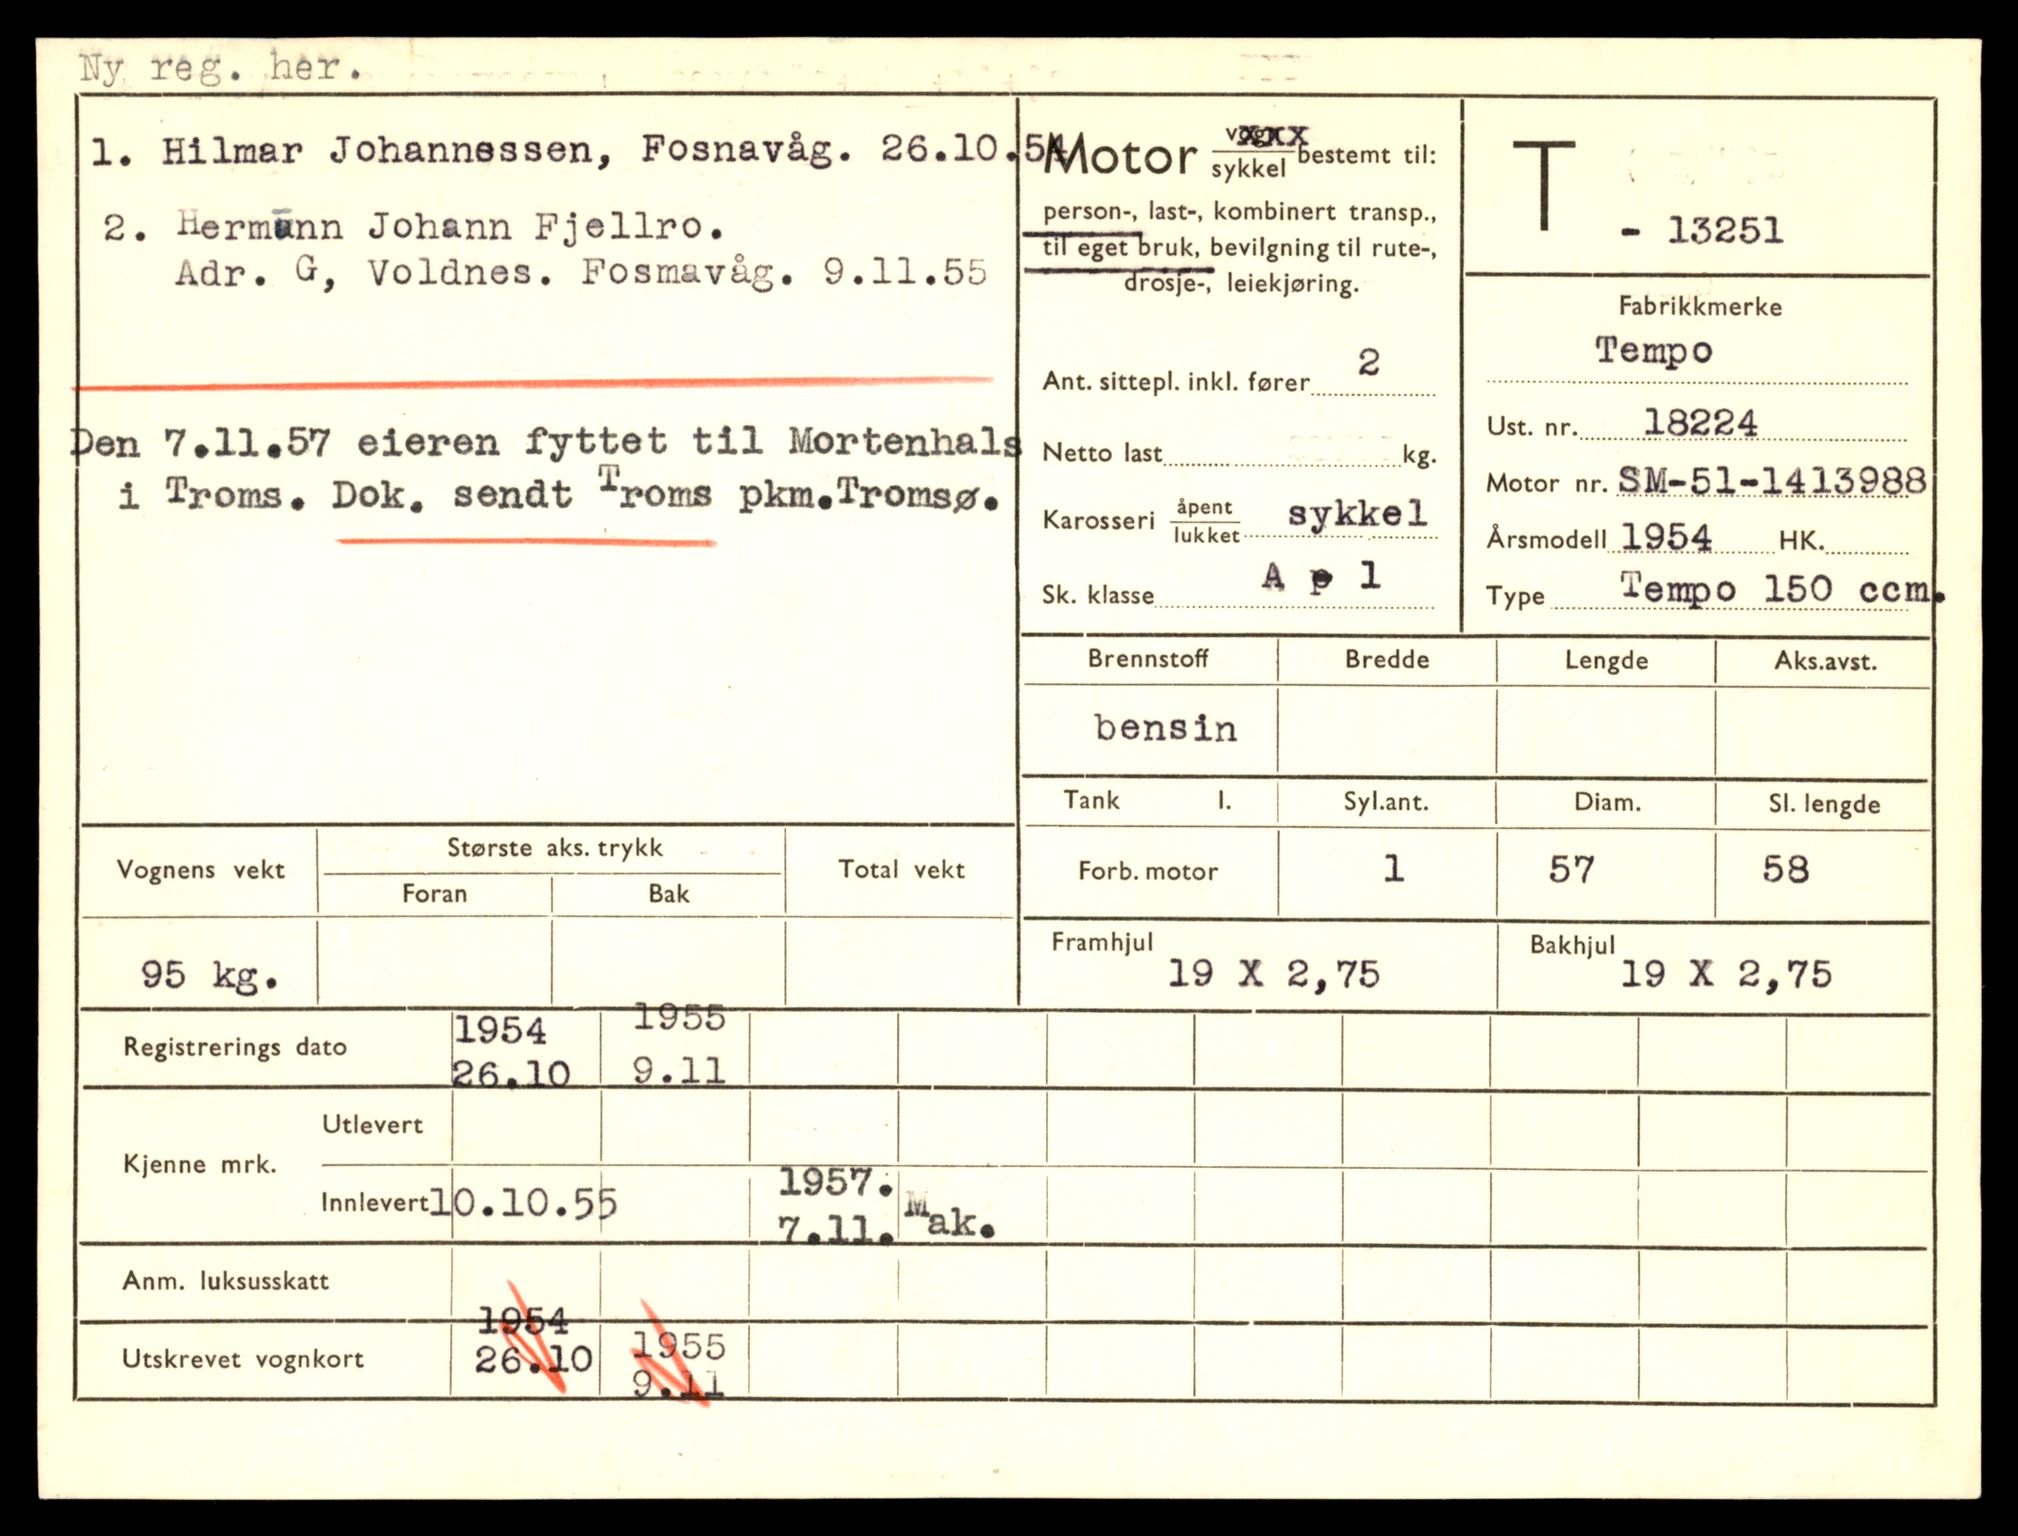 Ny reg. her.
1. Hilmar Johannessen, Fosnavåg. 26.10.54
2. Hermann Johann Fjellro.
Adr. G, Voldnes. Fosmavåg. 9.11.55
Den 7.11.57 eieren fyttet til Mortenhals
i Troms. Dok. sendt Troms pkm.Tromsø.
Motor vogn xxx / sykkel bestemt til:
person-, last-, kombinert transp.,
til eget bruk, bevilgning til rute-,
drosje-, leiekjøring.
Ant. sittepl. inkl. fører 2
Netto last kg.
Karosseri åpent / lukket sykkel
Sk. klasse A p 1
T - 13251
Fabrikkmerke
Tempo
Ust. nr. 18224
Motor nr. SM-51-1413988
Årsmodell 1954 HK.
Type Tempo 150 ccm.
Brennstoff Bredde Lengde Aks.avst.
bensin
Tank l. Syl.ant. Diam. Sl. lengde
Forb. motor 1 57 58
Framhjul 19 X 2,75 Bakhjul 19 X 2,75
Vognens vekt Største aks. trykk Total vekt
Foran Bak
95 kg.
Registrerings dato 1954 1955
26.10 9.11
Kjenne mrk. Utlevert
Innlevert 10.10.55 1957.
7.11. Mak.
Anm. luksusskatt
Utskrevet vognkort 1954 1955
26.10 9.11